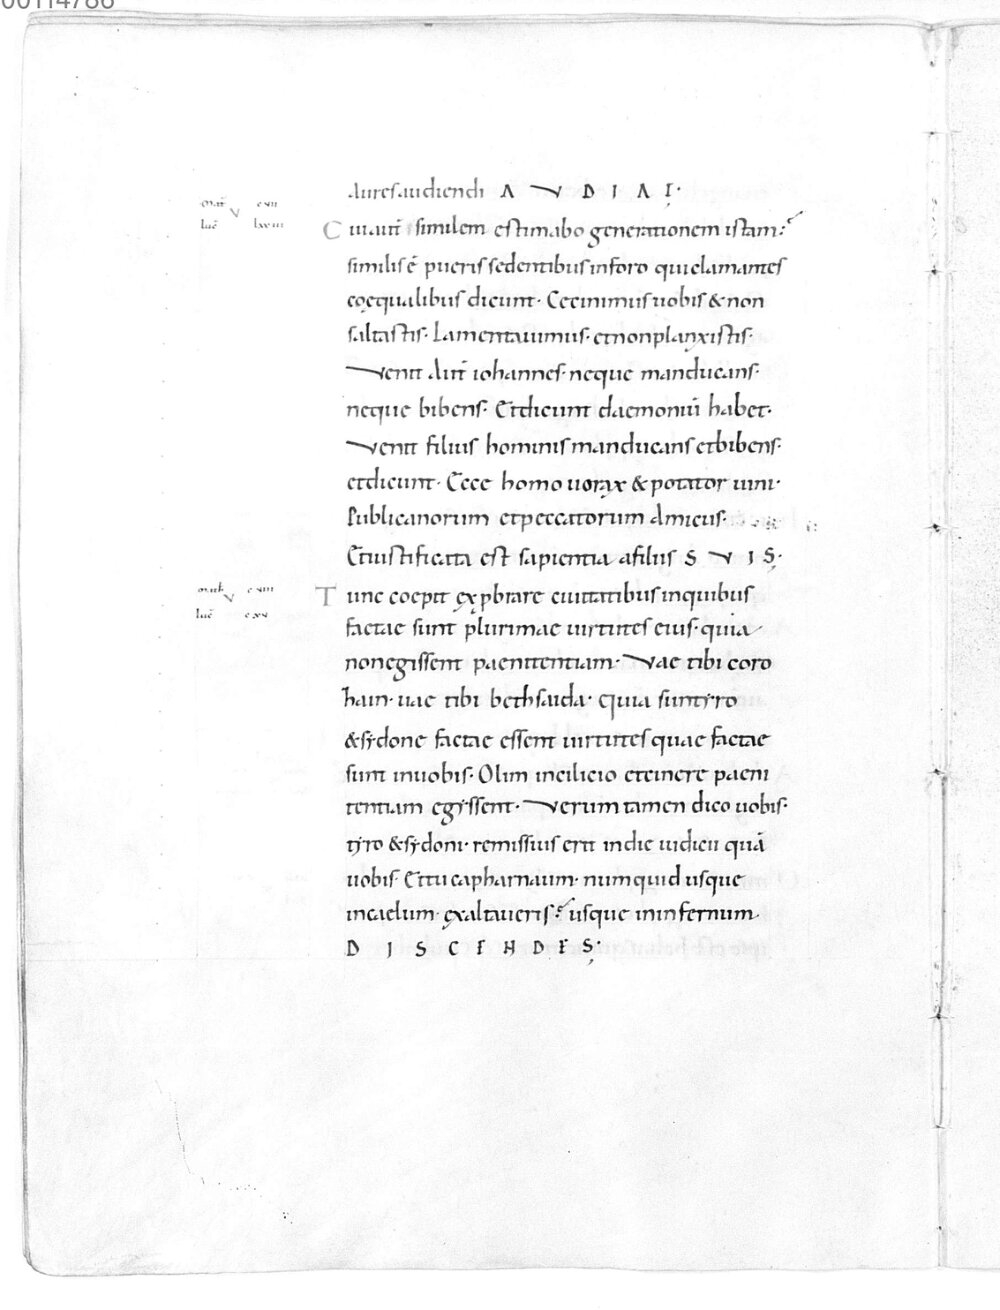 00114786
Aures audiendi AUDIAT·
mat̄ cvii
luc̄ lxviii
Cui aut̄ similem estimabo generationem istam:
similis ē pueris sedentibus in foro qui clamantes
coęqualibus dicunt· Cecinimus uobis & non
saltastis· Lamentauimus· et non planxistis·
Venit Aut̄ iohannes· neque manducans·
neque bibens· Et dicunt daemoniū habet·
Venit filius hominis manducans et bibens·
et dicunt· Ecce homo uorax & potator uini·
Publicanorum et peccatorum Amicus·
Et iustificata est sapientia a filiis SUIS·
luc̄ cxv
Tunc coepit exprobrare ciuitatibus in quibus
factae sunt plurimae uirtutes eius· quia
non egissent paenitentiam· Vae tibi coro
hain· uae tibi bethsaida· quia si in tyro
& sydone factae essent uirtutes quae factae
sunt in uobis· Olim in cilicio et cinere paeni
tentiam egyssent· Verum tamen dico uobis·
tyro & sydoni· remissius erit in die iudicii quā
uobis· Et tu capharnaum· numquid usque
in caelum· exaltaueris? usque in infernum
DISCENDES·